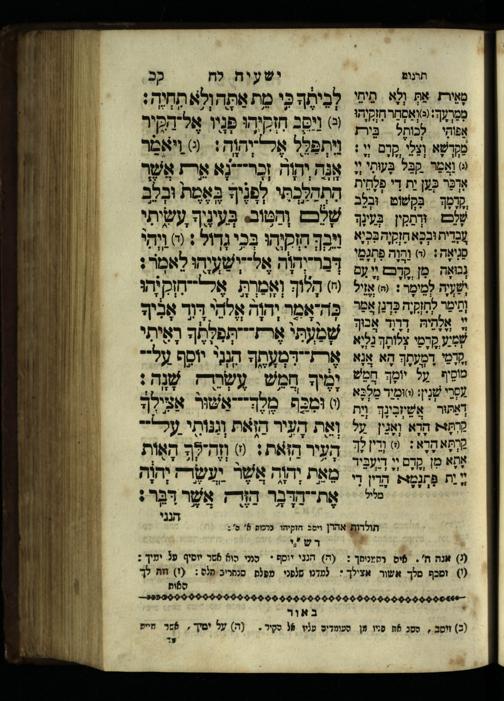 תרגום
ישעיה לח
קכ
לְבֵיתֶךָ כִּי מֵת אַתָּה וְלֹא תִחְיֶה:
(ב) וַיַּסֵּב חִזְקִיָּהוּ פָּנָיו אֶל־הַקִּיר
וַיִּתְפַּלֵּל אֶל־יְהוָֹה: (ג) וַיֹּאמַר
אָנָּה יְהוָֹה זְכָר־נָא אֵת אֲשֶׁר
הִתְהַלַּכְתִּי לְפָנֶיךָ בֶּאֱמֶת וּבְלֵב
שָׁלֵם וְהַטּוֹב בְּעֵינֶיךָ עָשִׂיתִי
וַיֵּבְךְּ חִזְקִיָּהוּ בְּכִי גָדוֹל: (ד) וַיְהִי
דְּבַר־יְהוָֹה אֶל־יְשַׁעְיָהוּ לֵאמֹר:
(ה) הָלוֹךְ וְאָמַרְתָּ אֶל־חִזְקִיָּהוּ
כֹּה־אָמַר יְהוָֹה אֱלֹהֵי דָּוִד אָבִיךָ
שָׁמַעְתִּי אֶת־תְּפִלָּתֶךָ רָאִיתִי
אֶת־דִּמְעָתֶךָ הִנְנִי יוֹסִף עַל־
יָמֶיךָ חֲמֵשׁ עֶשְׂרֵה שָׁנָה:
(ו) וּמִכַּף מֶלֶךְ־אַשּׁוּר אַצִּילְךָ
וְאֵת הָעִיר הַזֹּאת וְגַנּוֹתִי עַל־
הָעִיר הַזֹּאת: (ז) וְזֶה־לְּךָ הָאוֹת
מֵאֵת יְהוָֹה אֲשֶׁר יַעֲשֶׂה יְהוָֹה
אֶת־הַדָּבָר הַזֶּה אֲשֶׁר דִּבֵּר:
הנני
מָאִית אַתְּ וְלָא תֵיחֵי
מִמַּרְעָךְ: (ב) וְאַסְחַר חִזְקִיָּהוּ
אַפּוֹהִי לְכוֹתֶל בֵּית
מַקְדְּשָׁא וְצַלִּי קֳדָם יְיָ:
(ג) וַאֲמַר קַבֵּל בָּעוּתִי יְיָ
אִדְכַּר כְּעַן יַת דִּי פְלָחִית
קֳדָמָךְ בִּקְשׁוֹט וּבְלֵב
שְׁלִים וּדְתַקִּין בְּעֵינָךְ
עֲבָדִית וּבְכָא חִזְקִיָּה בִּכְיָא
סַגִּיאָה: (ד) וַהֲוָה פִתְגָם
נְבוּאָה מִן קֳדָם יְיָ עִם
יְשַׁעְיָה לְמֵימָר: (ה) אֱזֵיל
וְתֵימַר לְחִזְקִיָּה כִּדְנַן אֲמַר
יְיָ אֱלָהֵיהּ דְּדָוִד אֲבוּךְ
שְׁמִיעַ קֳדָמַי צְלוֹתָךְ גַּלְיָא
קֳדָמַי דִּמְעָתָךְ הָא אֲנָא
מוֹסִיף עַל יוֹמָךְ חֲמֵשׁ
עַסְרֵי שְׁנִין: (ו) וּמִיַּד מַלְכָּא
דְאַתּוּר אֲשֵׁיזְבִינָךְ וְיַת
קַרְתָּא הָדָא וְאַגֵּין עַל
קַרְתָּא הָדָא: (ז) וְדֵין לָךְ
אָתָא מִן קֳדָם יְיָ דְּיַעֲבֵיד
יְיָ יַת פִּתְגָמָא הָדֵין דִּי
מליל
תולדות אהרן ויסב חזקיהו ברכות
רש"י
(ג) אנה ה'. (ה) הנני יוסף. הנני הוא אשר יוסיף על ימיך:
(ו) ומכף מלך אשור אצילך. למדנו שלפני מפלת סנחריב חלה: (ז) וזה לך
האות
באור
(ב) ויסב, הסב את פניו מן העומדים עליו אל הקיר. (ה) על ימיך, אשר חיית
עד